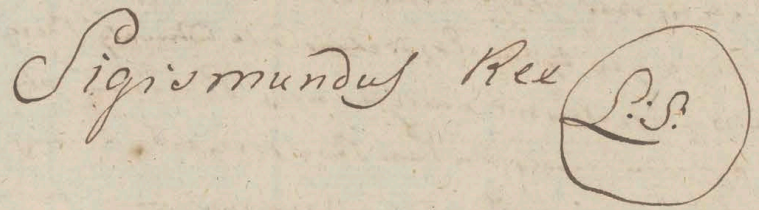 Sigismundus Rex L: S: